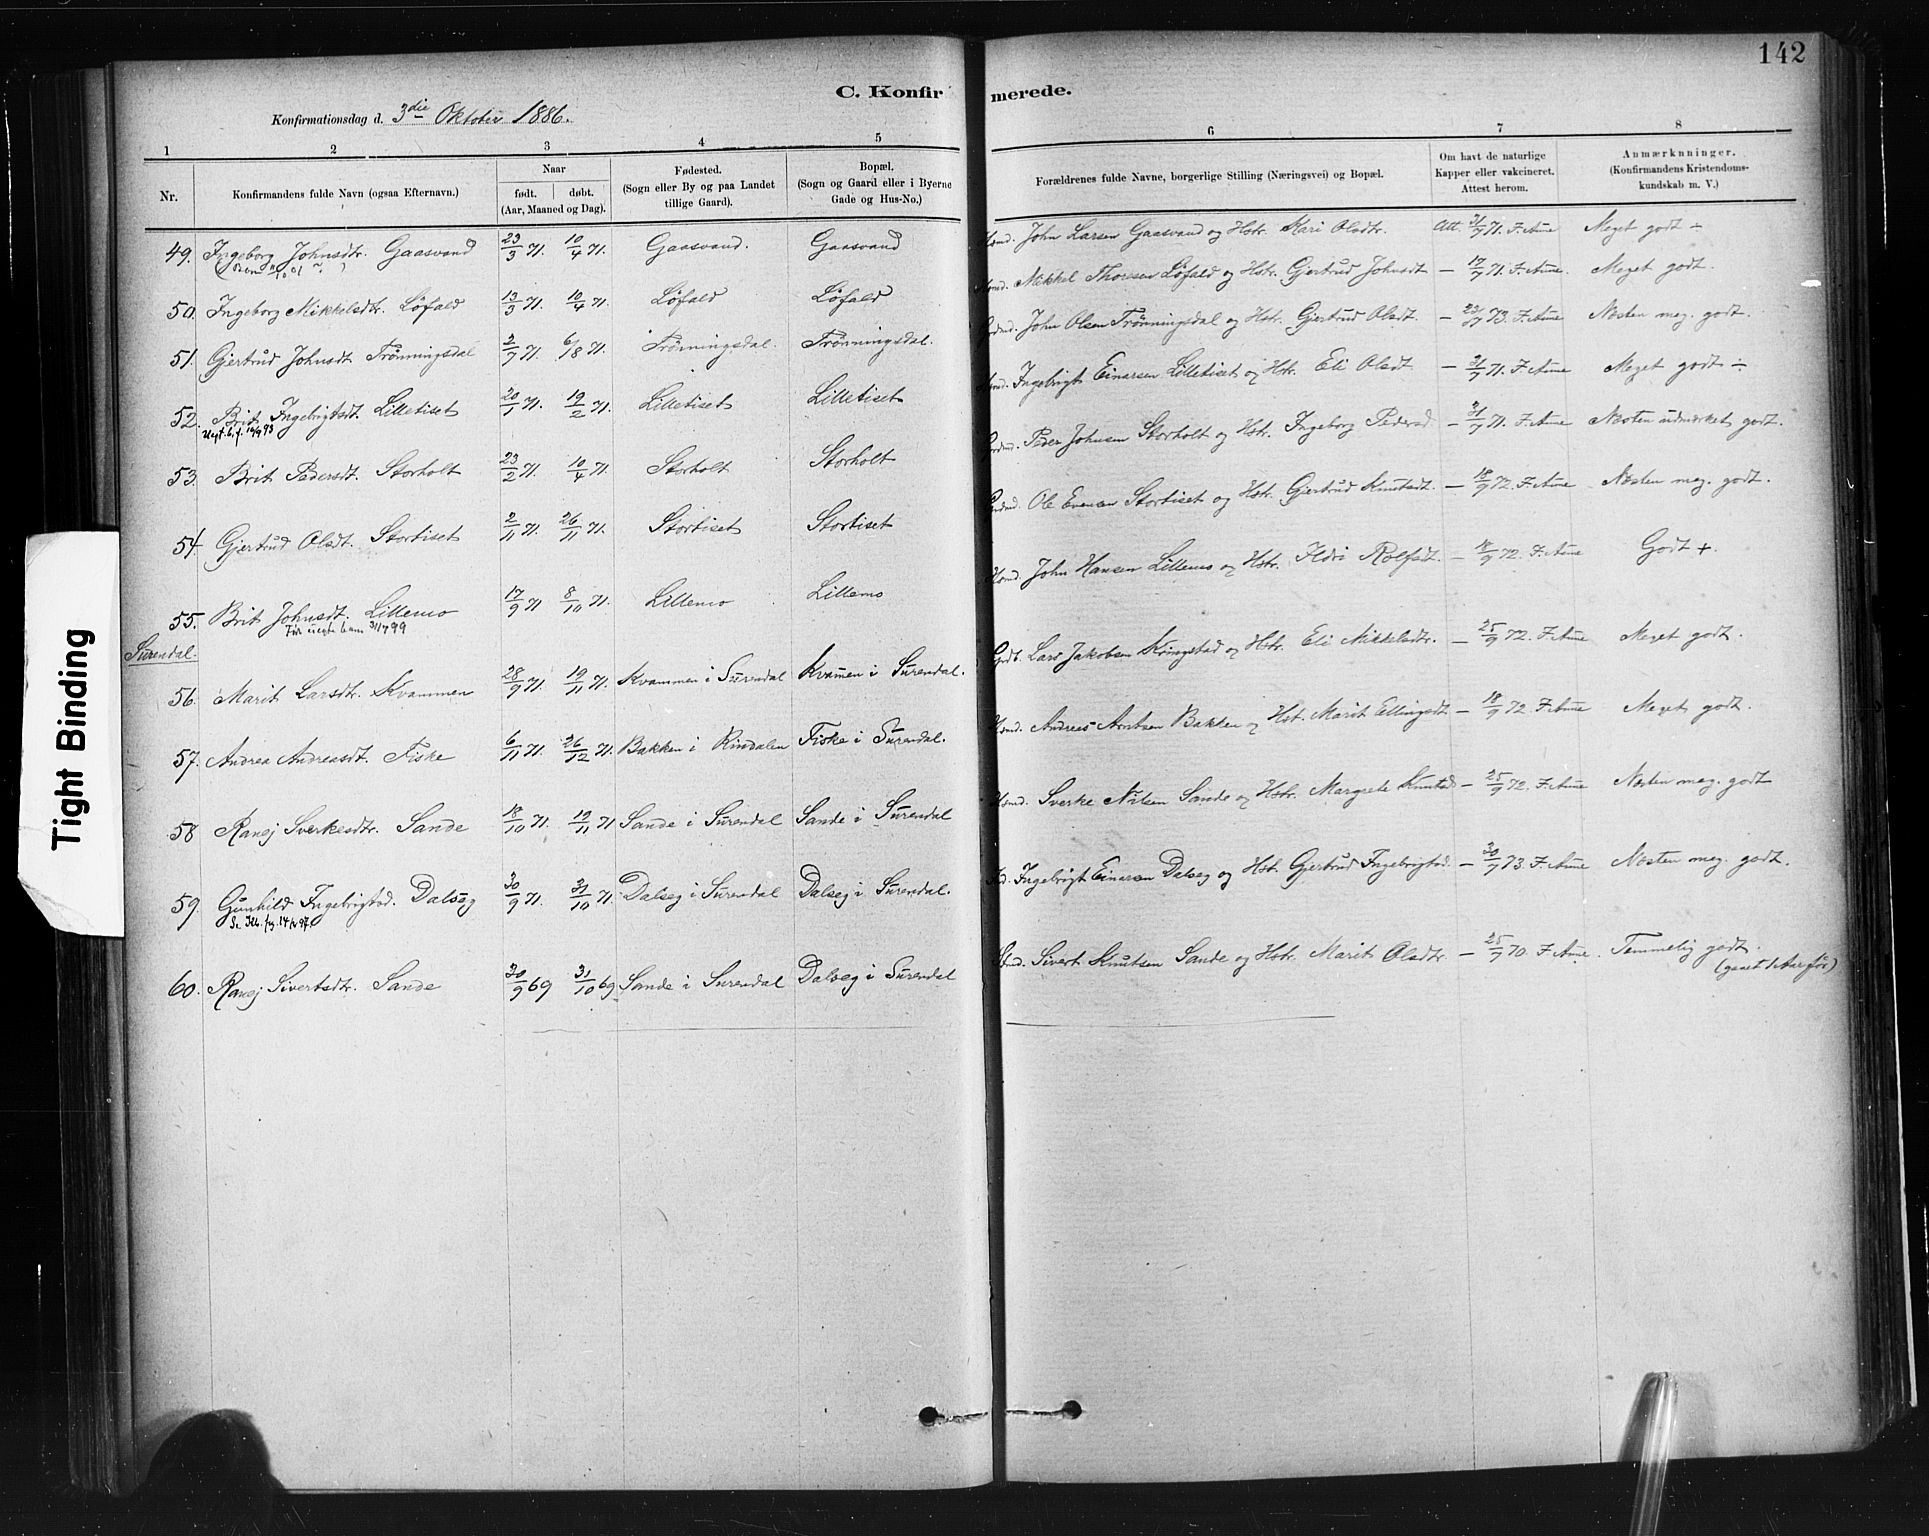 142
C. Konfirmerede.
Konfirmationsdag d. 3die Oktober 1886.
1 2 3 4 5 6 7 8
Nr.
Konfirmandens fulde Navn (ogsaa Efternavn.)
Naar
født. døbt.
(Aar, Maaned og Dag).
Fødested.
(Sogn eller By og paa Landet
tillige Gaard).
Bopæl.
(Sogn og Gaard eller i Byerne
Gade og Hus-No.)
Forældrenes fulde Navne, borgerlige Stilling (Næringsvei) og Bopæl.
Om havt de naturlige
Kapper eller vakcineret.
Attest herom.
Anmærkninger.
(Konfirmandens Kristendoms-
kundskab m. V.)
49. Ingeborg Johnsdtr. Gaasvand 23/3 71. 10/4 71. Gaasvand. Gaasvand John Larsen Gaasvand og Hstr. Kari Olsdtr. Att. 31/7 71. F. Aune Meget godt ÷
50. Ingeborg Mikkelsdtr. Løfald 13/3 71. 10/4 71. Løfald Løfald Mikkel Thoresen Løfald og Hstr. Gjertrud Johnsdt — 17/7 71. F. Aune. Meget godt.
51. Gjertrud Johnsdt Trønningsdal 2/7 71. 6/8 71. Trønningsdal. Trønningsdal. John Olsen Trønningsdal og Hstr. Gjertrud Olsdt. — 23/7 73. F. Aune Næsten meg. godt.
52. Brit Ingebrigtsdt. Lilletiset 20/1 71. 19/2 71. Lilletiset Lilletiset Ingebrigt Einarsen Lilletiset og Hstr. Eli Olsdt — 31/7 71. F. Aune Meget godt ÷
53. Brit Pedersdt. Storholt 23/2 71. 10/4 71. Storholt Storholt Peder Johnsen Storholt og Hstr. Ingeborg Pedersd. — 31/7 71. F. Aune Næsten udmærket godt.
54. Gjertrud Olsdt. Stortiset 2/11 71. 26/11 71. Stortiset Stortiset Ole Evensen Stortiset og Hstr. Gjertrud Knutsdt. — 18/9 72. F. Aune. Næsten meg. godt.
55. Brit Johnsdt. Lillemo 17/9 71 8/10 71. Lillemo Lillemo John Hansen Lillemo og Hstr. Ildri Rolfsdt. — 18/9 72. F. Aune Godt +.
Surendal.
56. Marit Larsdtr. Kvammen 28/9 71. 19/11 71. Kvammen i Surendal Kvamen i Surendal. Lars Jakobsen Kringstad og Hstr. Eli Mikkelsdtr. — 25/9 72. F. Aune Meget godt.
57. Andrea Andreasdt. Fiske 6/11 71. 26/12 71. Bakken i Rindalen Fiske i Surendal. Andreas Arntsen Bakken og Hst. Marit Ellingsdt — 18/9 72. F. Aune Meget godt.
58 Ranej Sverkesdtr. Sande 18/10 71. 19/11 71 Sande i Surendal Sande i Surendal Sverke Nilsen Sande og Hstr. Margrete Knutsd — 25/9 72. F. Aune Næsten meg. godt
59. Gunhild Ingebrigtsd. Dalseg 30/9 71. 31/10 71. Dalseg i Surendal Dalseg i Surendal. Ingebrigt Einarsen Dalseg og Hst. Gjertrud Ingebrigtsd. — 30/7 73. F. Aune Næsten meg. godt.
60. Ranej Sivertsdtr. Sande 30/9 69 31/10 69 Sande i Surendal Dalseg i Surendal Sivert Knutsen Sande og Hstr. Marit Olsdtr. — 25/9 70. F. Aune. Temmelig godt.
Tight Binding